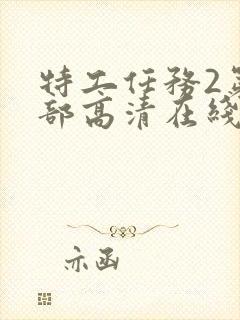 特工任務2第
部高清在綫
亦函